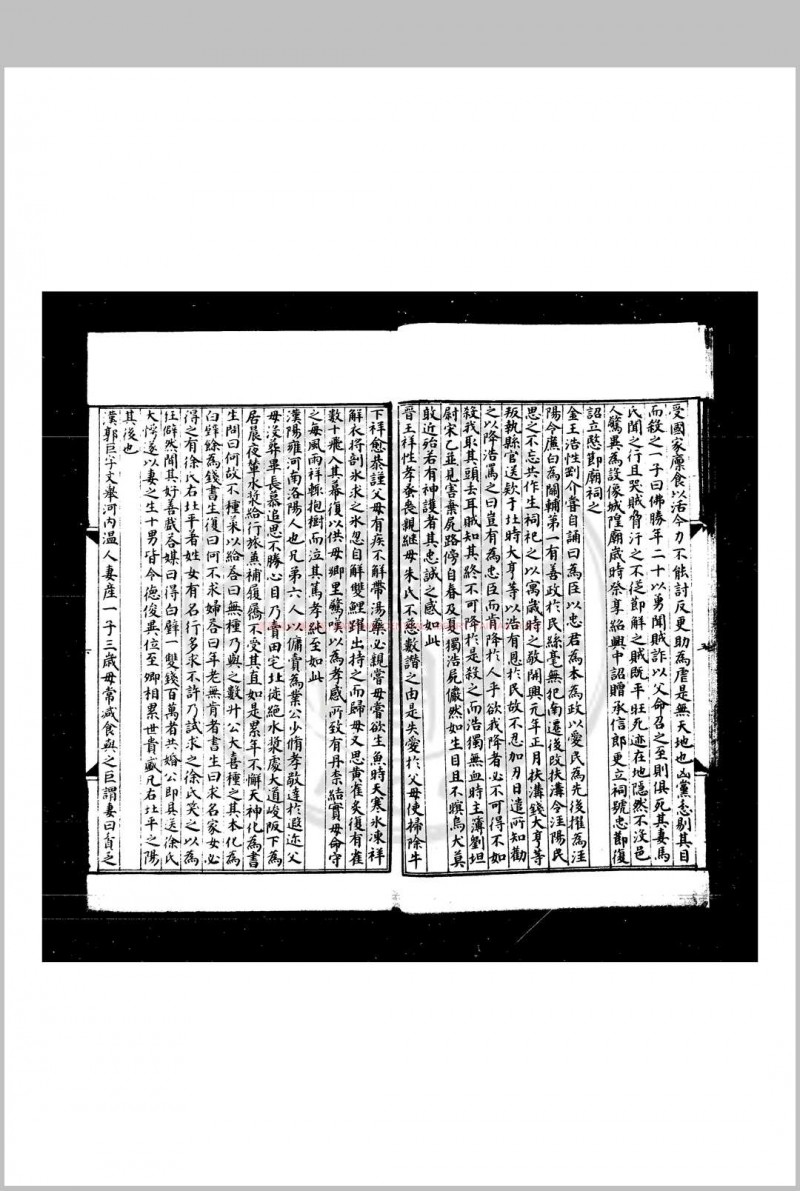 受國家廪食以活今力不能討反更助為虐是無天地也凶黨忿剔其目
而殺之一子曰佛勝年二十以勇聞賊詐以父命召之至則俱死其妻馬
氏聞之行且哭賊脅汙之不從節解之賊既平旺死迹在地隐然不沒邑
人驚異為設像城隍廟歲時祭享紹興中詔贈承信郎更立祠號忠節復
詔立愍節廟祠之
金王浩性剛介嘗自誦曰為臣以忠君為本為政以愛民為先後擢為涇
陽令廉白為關輔第一有善政於民絲毫無犯南遷後改扶溝令涇陽民
思之不忘共作生祠祀之以寓歲時之敬開興元年正月扶溝錢大亨等
叛執縣官送款于北時大亨等以浩有恩於民故不忍加刃日遣所知勸
之以降浩罵之曰豈有為忠臣而肯降人乎欲我降者必不可得不如
殺我取其頭去耳賊知其終不可降於是殺之而浩獨無血時主簿劉坦
尉宋乙並見害棄屍路傍自春及夏獨浩屍儼然如生目且不瞑烏犬莫
敢近殆若有神護者其忠誠之感如此
晉王祥性孝蚤喪親繼母朱氏不慈數譖之由是失愛於父母使掃除牛
下祥愈恭謹父母有疾不解帶湯藥必親嘗母嘗欲生魚時天寒氷凍祥
解衣將剖氷求之氷忽自解雙鯉躍出持之而歸母又思黃雀炙復有雀
數十飛入其幕復以供母鄉里驚嘆以為孝感所致有丹柰結實母命守
之每風雨祥輒抱樹而泣其篤孝純至如此
漢陽雍河南洛陽人也兄弟六人以傭賣為業公少脩孝敬達於遐迩父
母没葬畢長慕追思不勝心目乃賣田宅北徙絶水漿處大道峻阪下為
居晨夜輦水漿給行旅兼補履屩不受其直如是累年不懈天神化為書
生問曰何故不種菜以給荅曰無種乃與之數升公大喜種之其本化為
白璧餘為錢書生復曰何不求婦荅曰年老無肯者書生曰求名家女必
得之有徐氏右北平著姓女有名行多求不許乃試求之徐氏笑之以為
狂僻然聞其好善戲荅媒曰得白璧一雙錢百萬者共婚公即具送徐氏
大愕遂以妻之生十男皆令德俊異位至卿相累世貴盛凡右北平之陽
其後也
漢郭巨字文舉河内温人妻産一子三歲母常减食與之巨謂妻曰貧乏